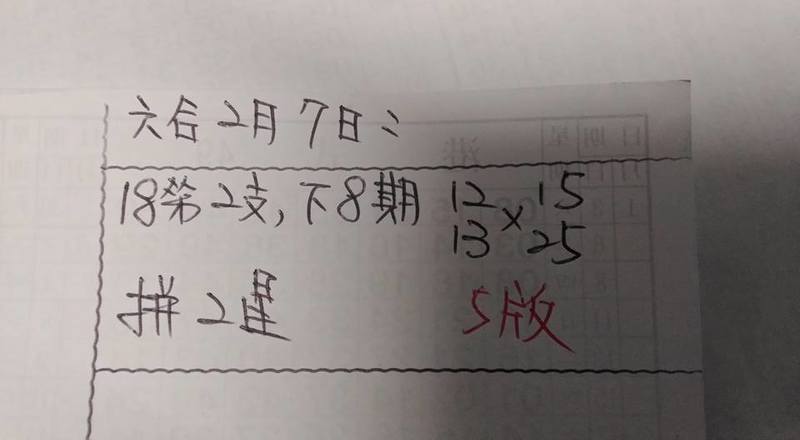 六合2月7日:
18第2支,下8期 12 × 15
13 25
拼2星 5版